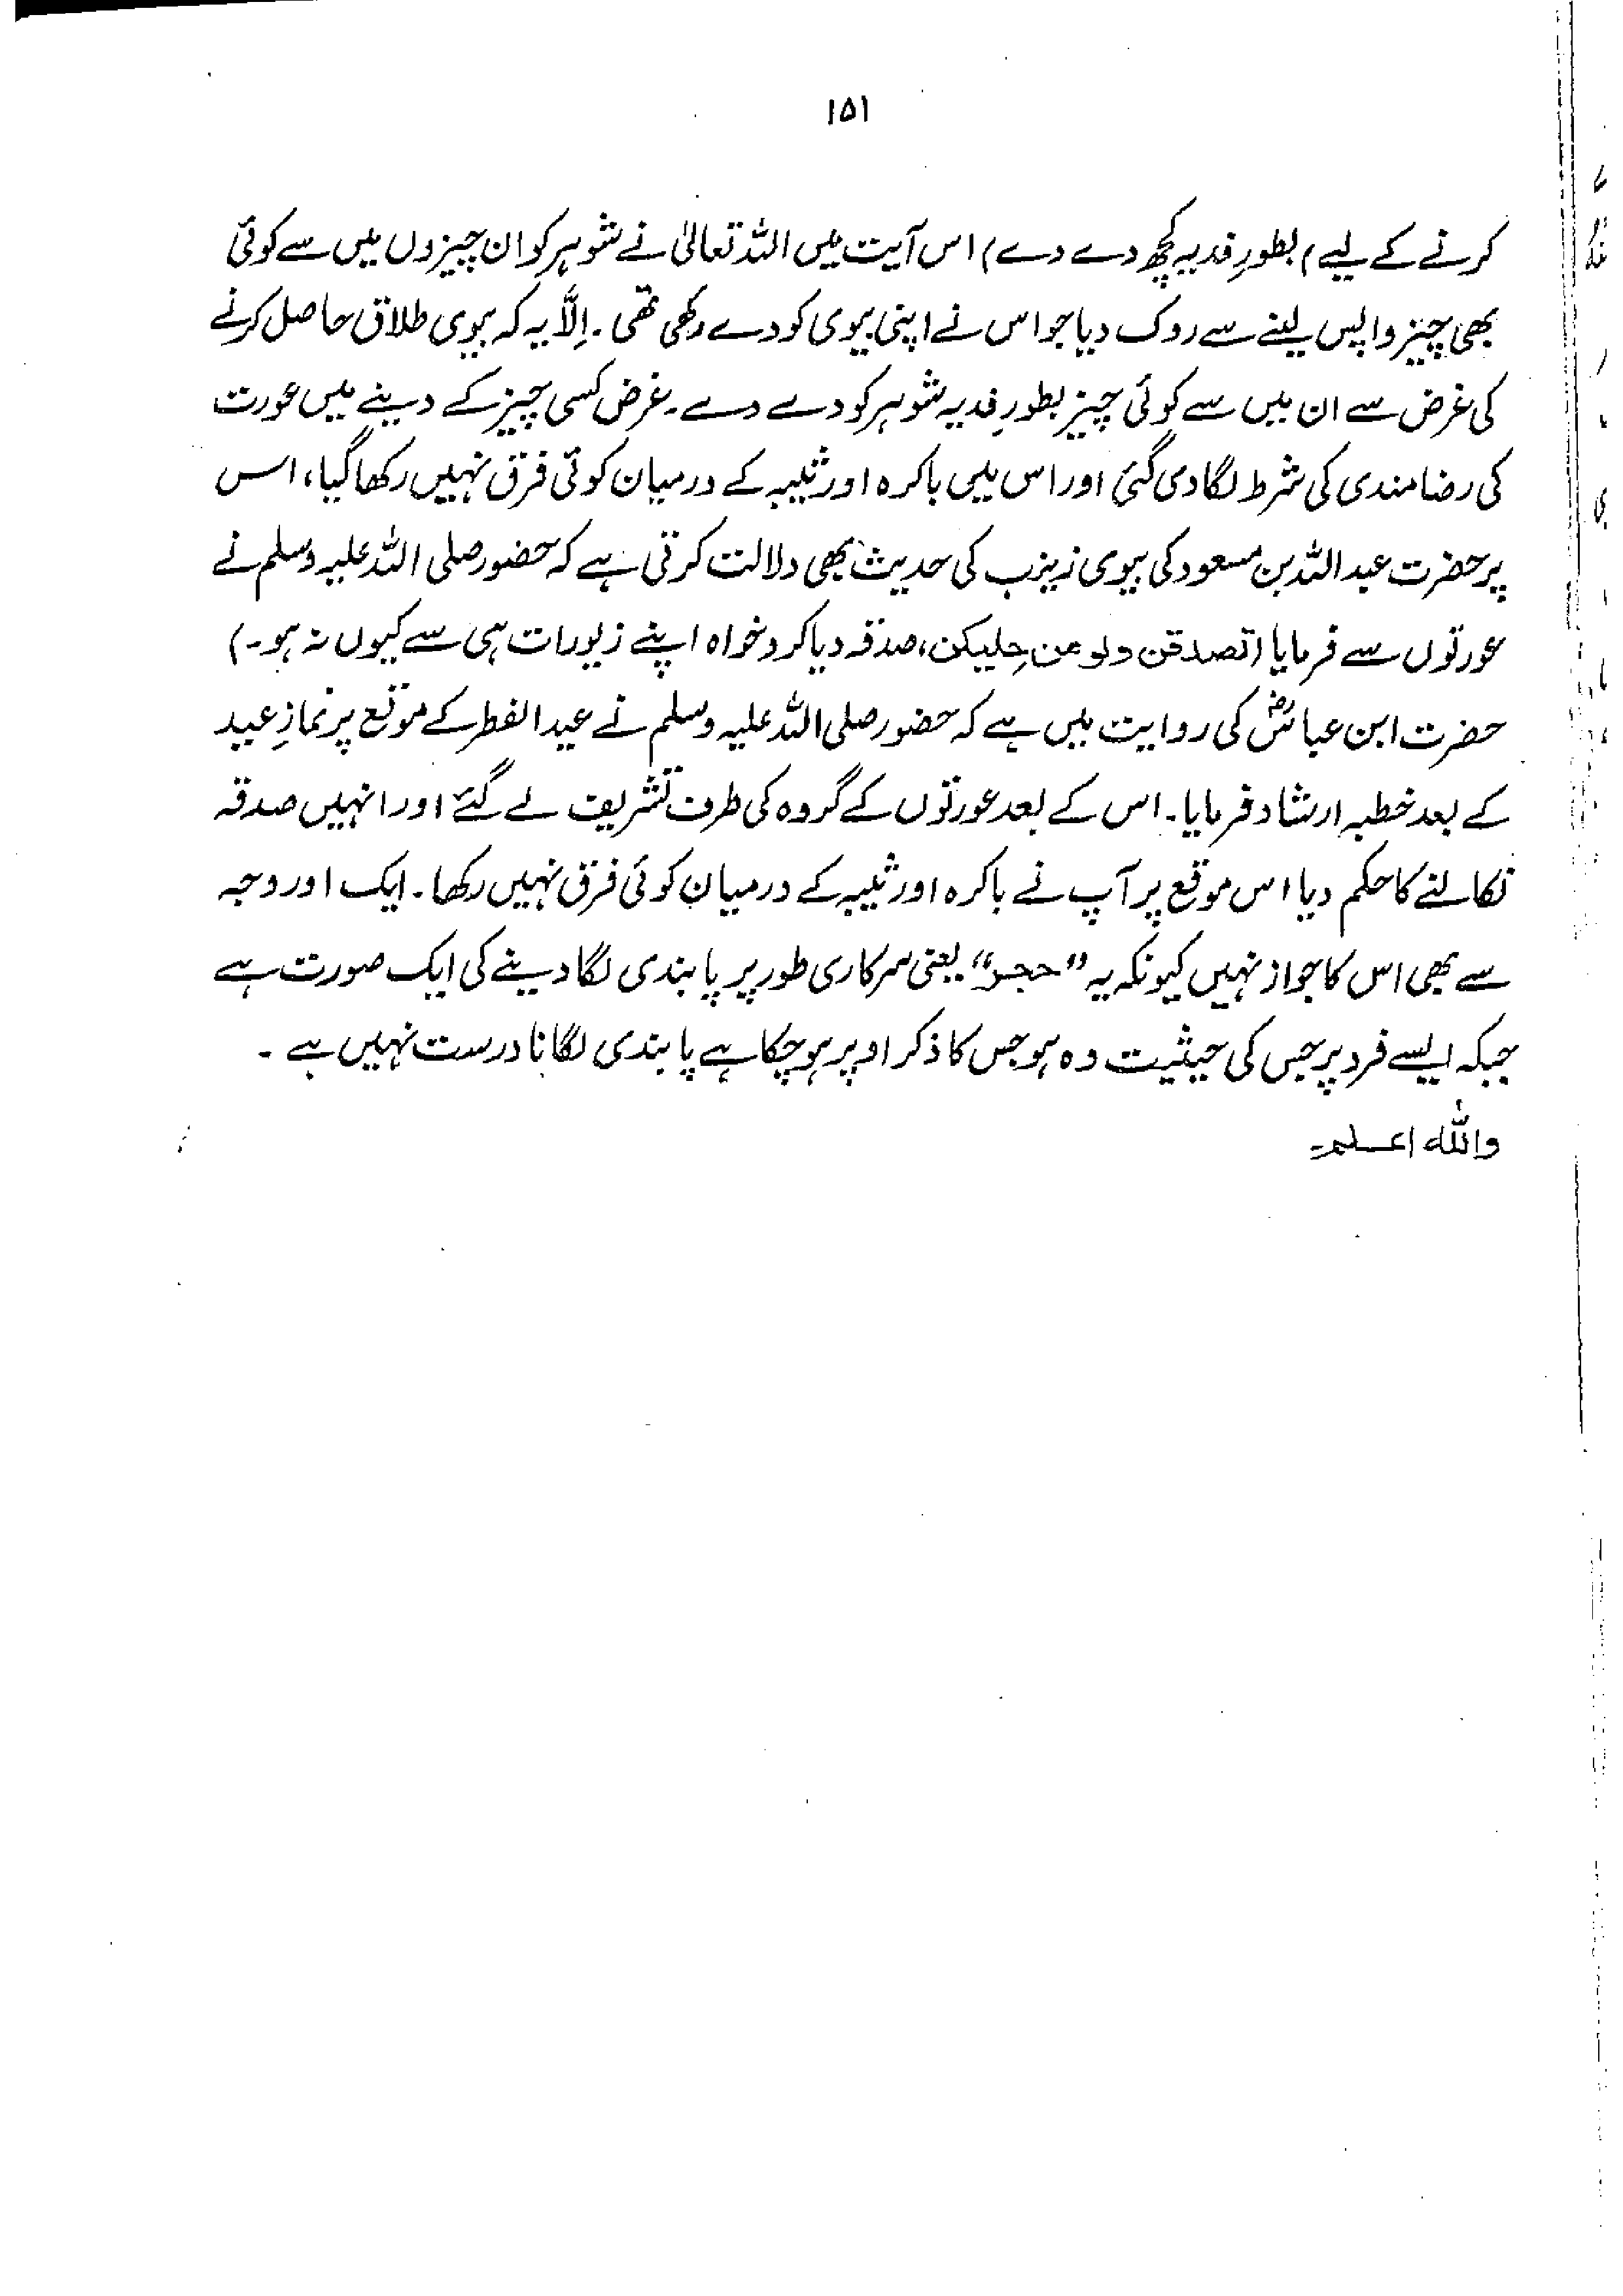 ۱۵۱
کرنے کے لیے) بطورِ فدیہ کچھ دے دے) اس آیت میں اللہ تعالیٰ نے شوہر کو ان چیزوں میں سے کوئی
بھی چیز واپس لینے سے روک دیا جو اس نے اپنی بیوی کو دے رکھی تھی۔ اِلَّا یہ کہ بیوی طلاق حاصل کرنے
کی غرض سے ان میں سے کوئی چیز بطورِ فدیہ شوہر کو دے دے۔ غرض کسی چیز کے دینے میں عورت
کی رضامندی کی شرط لگا دی گئی اور اس میں باکرہ اور ثیبہ کے درمیان کوئی فرق نہیں رکھا گیا، اس
پر حضرت عبداللہ بن مسعود کی بیوی زینب کی حدیث بھی دلالت کرتی ہے کہ حضور صلی اللہ علیہ وسلم نے
عورتوں سے فرمایا (تصدقن ولو من حلیکن، صدقہ دیا کرو خواہ اپنے زیورات ہی سے کیوں نہ ہو۔)
حضرت ابن عباسؓ کی روایت میں ہے کہ حضور صلی اللہ علیہ وسلم نے عید الفطر کے موقع پر نمازِ عید
کے بعد خطبہ ارشاد فرمایا۔ اس کے بعد عورتوں کے گروہ کی طرف تشریف لے گئے اور انہیں صدقہ
نکالنے کا حکم دیا اس موقع پر آپ نے باکرہ اور ثیبہ کے درمیان کوئی فرق نہیں رکھا۔ ایک اور وجہ
سے بھی اس کا جواز نہیں کیونکہ یہ "حجر" یعنی سرکاری طور پر پابندی لگا دینے کی ایک صورت ہے
جبکہ ایسے فرد پر جس کی حیثیت وہ ہو جس کا ذکر اوپر ہو چکا ہے پابندی لگانا درست نہیں ہے۔
واللہ اعلم۔